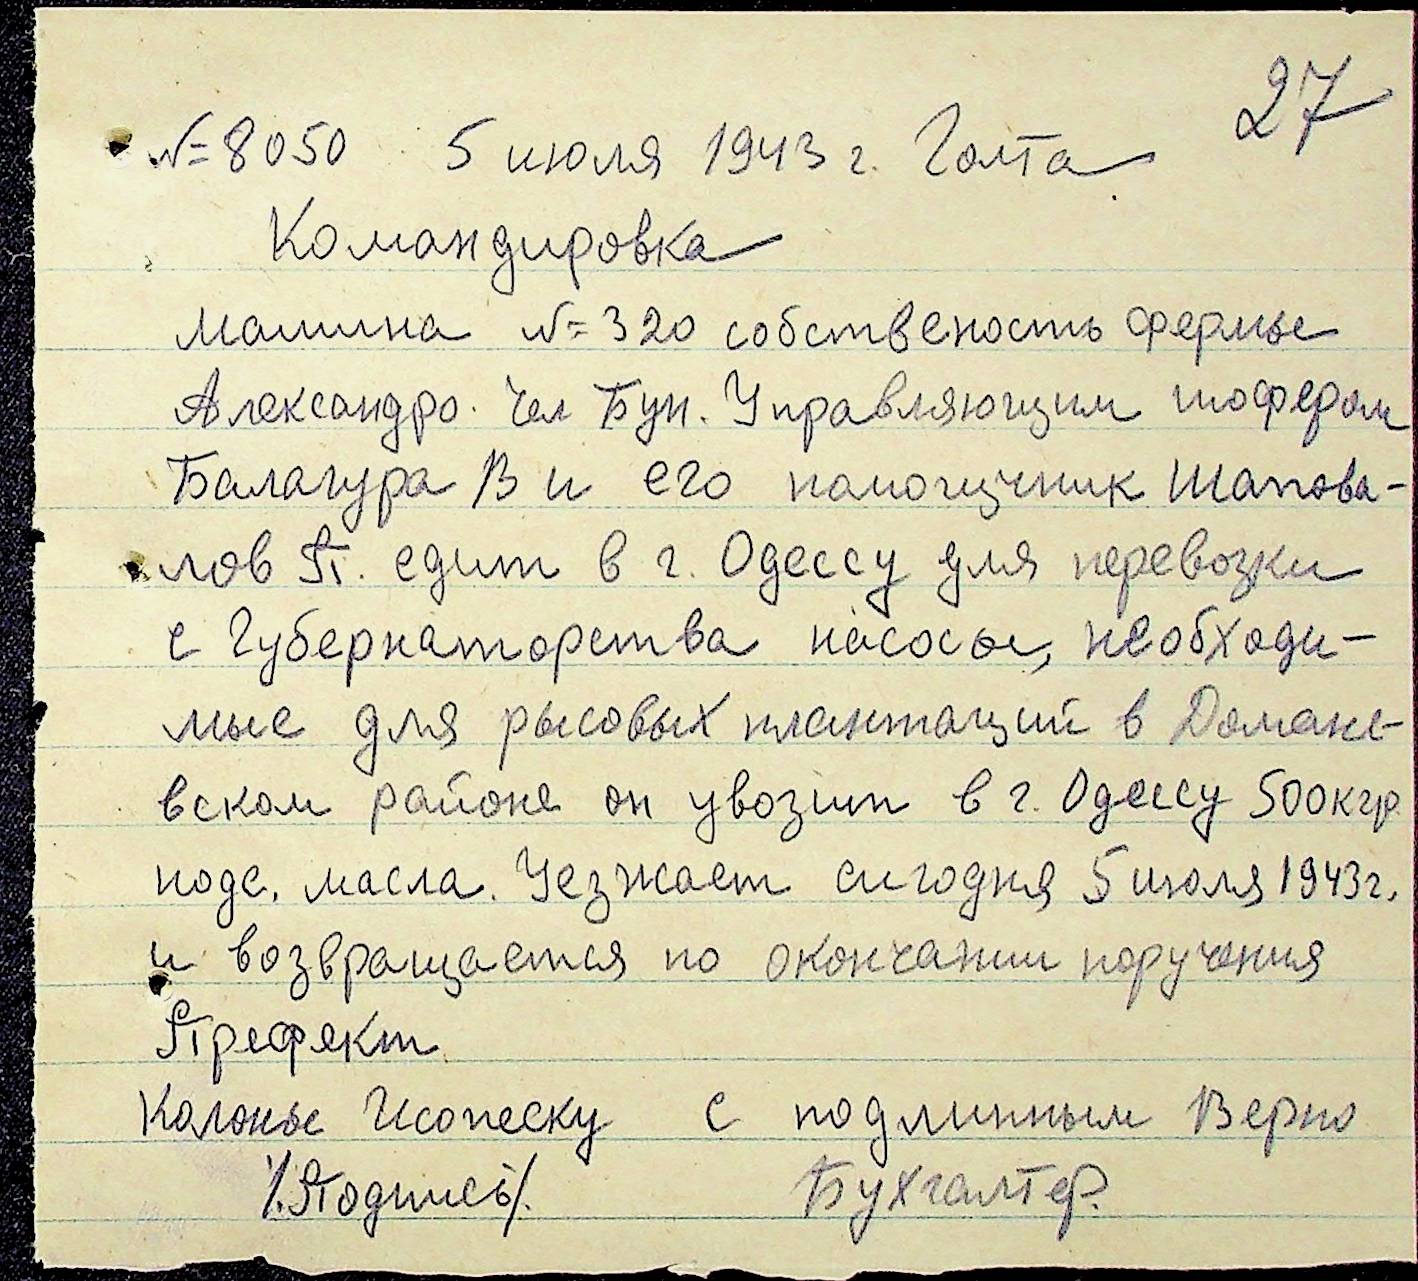 27
№ 8050 5 июля 1943 г. Голта
Командировка
Машина № 320 собственость фермы
Александро. Чел Бун. Управляющим шофером
Балагура В и его помощчник Шапова-
лов П. едит в г. Одессу для перевозки
с Губернаторства насосы, необходи-
мые для рысовых плантаций в Домане-
вском районе он увозит в г. Одессу 500 кгр.
подс. масла. Уезжает сигодня 5 июля 1943 г.
и возвращается по окончании поручения
Префект
Колонье Исопеску с подлинным Верно
/.Подпись/. Бухгалтер.